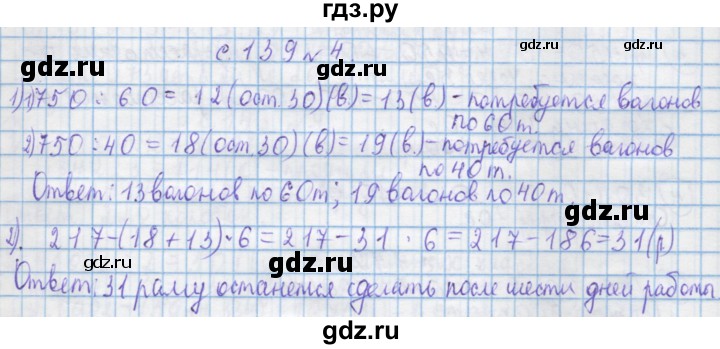 гдз.ру
с. 139 № 4
1) 1) 750 : 60 = 12 (ост. 30) (в) = 13 (в) - потребуется вагонов
по 60 т.
2) 750 : 40 = 18 (ост. 30) (в) = 19 (в) - потребуется вагонов
по 40 т.
Ответ: 13 вагонов по 60 т; 19 вагонов по 40 т.
2). 217 - (18 + 13) · 6 = 217 - 31 · 6 = 217 - 186 = 31 (р)
Ответ: 31 раму останется сделать после шести дней работы
gdz.ru
gdz.ru
gdz.ru
gdz.ru
gdz.ru
gdz.ru
gdz.ru
gdz.ru
gdz.ru
gdz.ru
gdz.ru